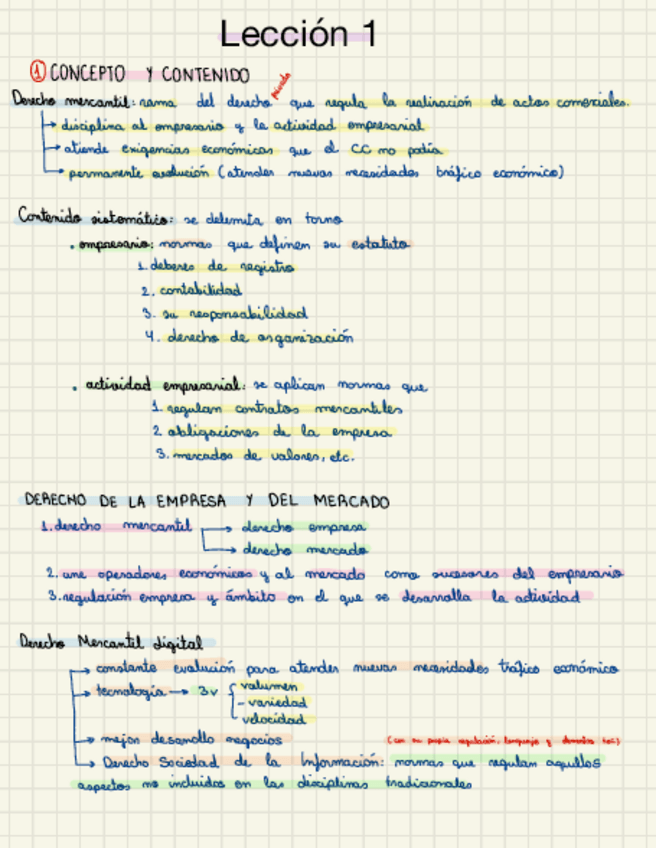 Lección 1
① CONCEPTO Y CONTENIDO
privado
Derecho mercantil: rama del derecho que regula la realización de actos comerciales.
→ disciplina al empresario y la actividad empresarial
→ atiende exigencias económicas que el CC no podía
→ permanente evolución (atender nuevas necesidades tráfico económico)
Contenido sistemático: se delimita en torno
. empresario: normas que definen su estatuto
1. deberes de registro
2. contabilidad
3. su responsabilidad
4. derecho de organización
. actividad empresarial: se aplican normas que
1. regulan contratos mercantiles
2 obligaciones de la empresa
3. mercados de valores, etc.
DERECHO DE LA EMPRESA Y DEL MERCADO
1. derecho mercantil → derecho empresa
→ derecho mercado
2. une operadores económicos y al mercado como sucesores del empresario
3. regulación empresa y ámbito en el que se desarrolla la actividad
Derecho Mercantil digital
→ constante evolución para atender nuevas necesidades tráfico económico
→ tecnología → 3v { volumen
- variedad
velocidad
→ mejor desarrollo negocios
(con su propia regulación, lenguaje y
→ Derecho Sociedad de la Información: normas que regulan aquellos
aspectos no incluidos en las disciplinas tradicionales